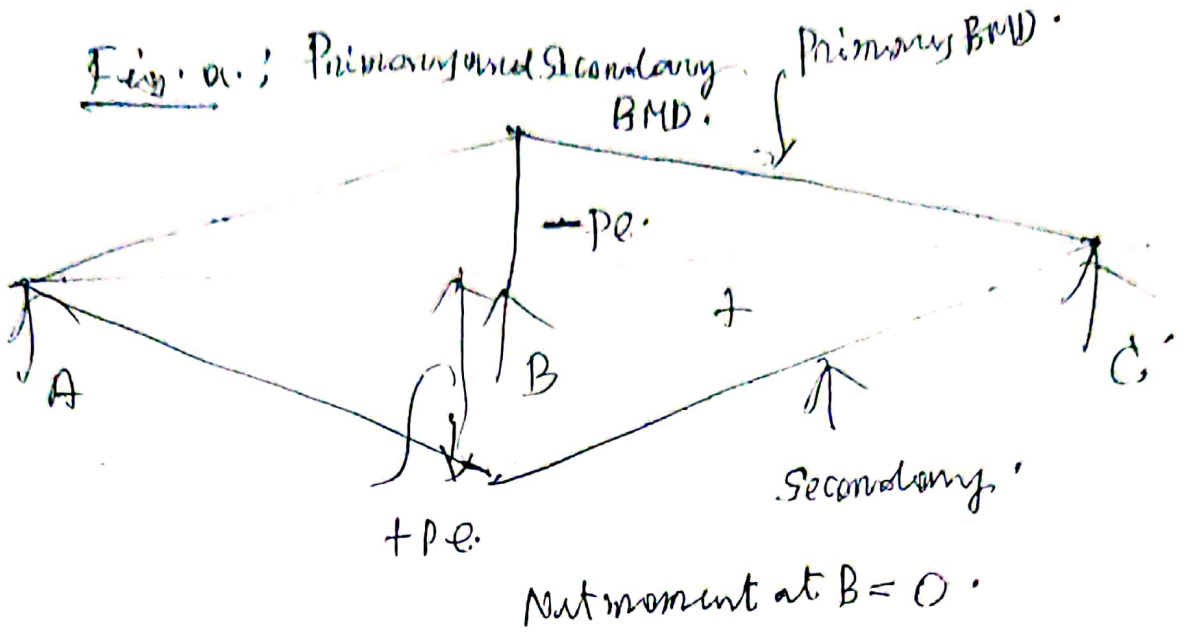 Fig. a.: Primary and Secondary BMD.
Primary BMD.
-Pe.
+
A
B
C
+Pe.
Secondary.
Net moment at B = 0.